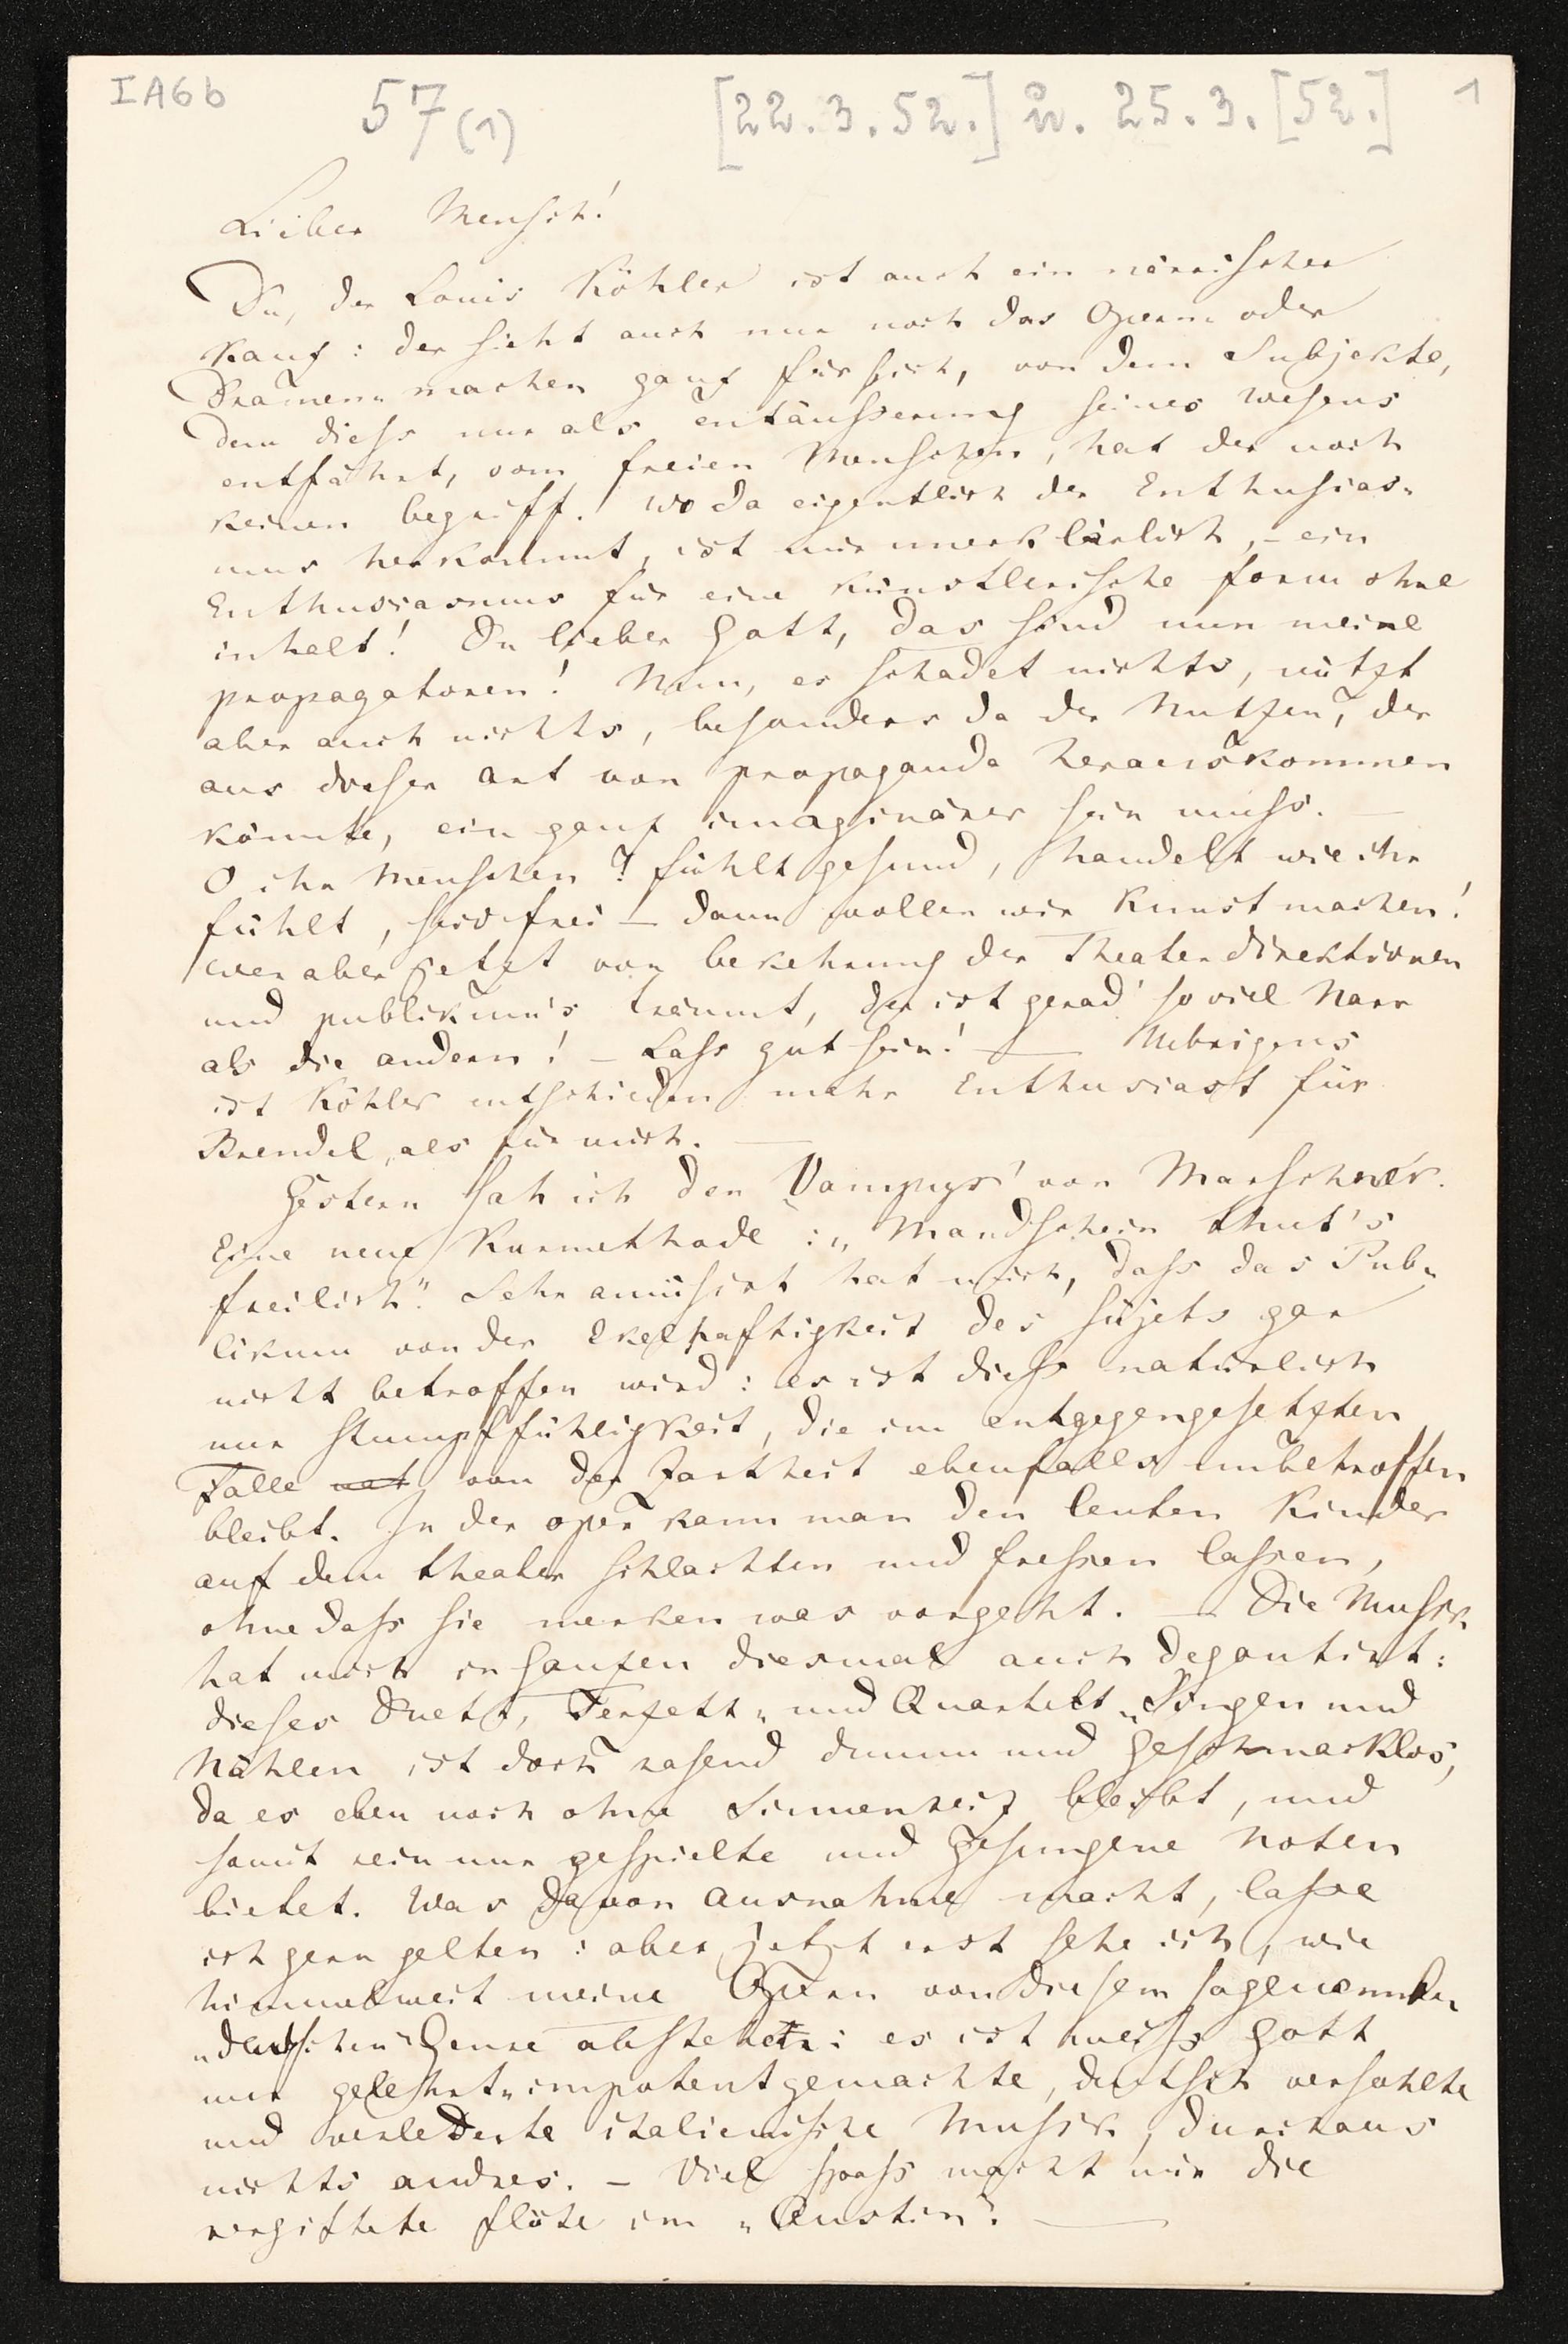 IA6b 57(1) [22.3.52.] u. 25.3.[52.] 1
Lieber Mensch!
Du, der Louis Köhler ist auch ein närrischer
Kauz: der sieht auch nur noch das Opern- oder
Dramen-machen ganz für sich, von dem Subjekte,
dem diess nur als entäusserung seines wesens
entfährt, vom freien Menschen, hat der noch
keinen begriff. Wo da eigentlich der Enthusias-
mus herkommt, ist mir unerklärlich, – ein
Enthusiasmus für eine künstlerische form ohne
inhalt! Du lieber Gott, das sind nun meine
propagatoren! Nun, es schadet nichts, nützt
aber auch nichts, besonders da der Nutzen, der
aus dieser art von propaganda herauskommen
könnte, ein ganz imaginärer sein muss. —
O ihr Menschen! fühlt gesund, handelt wie ihr
fühlt, seid frei – dann wollen wir Kunst machen!
wer aber jetzt von bekehrung der Theaterdirektionen
und publikum's träumt, der ist gerad' so viel Narr
als die andern! – Lass gut sein! — Uebrigens
ist Köhler entschieden mehr Enthusiast für
Brendel, als für mich. —
Gestern sah ich den „Vampyr" von Marschner.
Eine neue Kurmethode: „Mondschein thut's
freilich". Sehr amüsirt hat mich, dass das Pub-
likum von der Ekelhaftigkeit des süjets gar
nicht betroffen wird: es ist diess natürlich
nur stumpffühligkeit, die im entgegengesetzten
Falle von der Zartheit ebenfalls unbetroffen
bleibt. In der oper kann man den leuten Kinder
auf dem theater schlachten und fressen lassen,
ohne dass sie merken was vorgeht. – Die Musik
hat mich im Ganzen diesmal auch degoutirt:
dieses Duett-, Terzett- und Quartett-Singen und
Nöhlen ist doch rasend dumm und geschmacklos,
da es eben noch ohne Sinnenreiz bleibt, und
somit rein nur gespielte und gesungene Noten
bietet. Was davon Ausnahme macht, lasse
ich gern gelten: aber jetzt erst sehe ich, wie
himmelweit meine Opern von diesem sogenannten
„deutschen" Genre abstehen: es ist weiss Gott
nur gelehrt-impotentgemachte, deutsch versohlte
und verlederte italienische Musik, durchaus
nichts andres. – Viel spass macht mir die
vergiftete flöte im „Austin". —